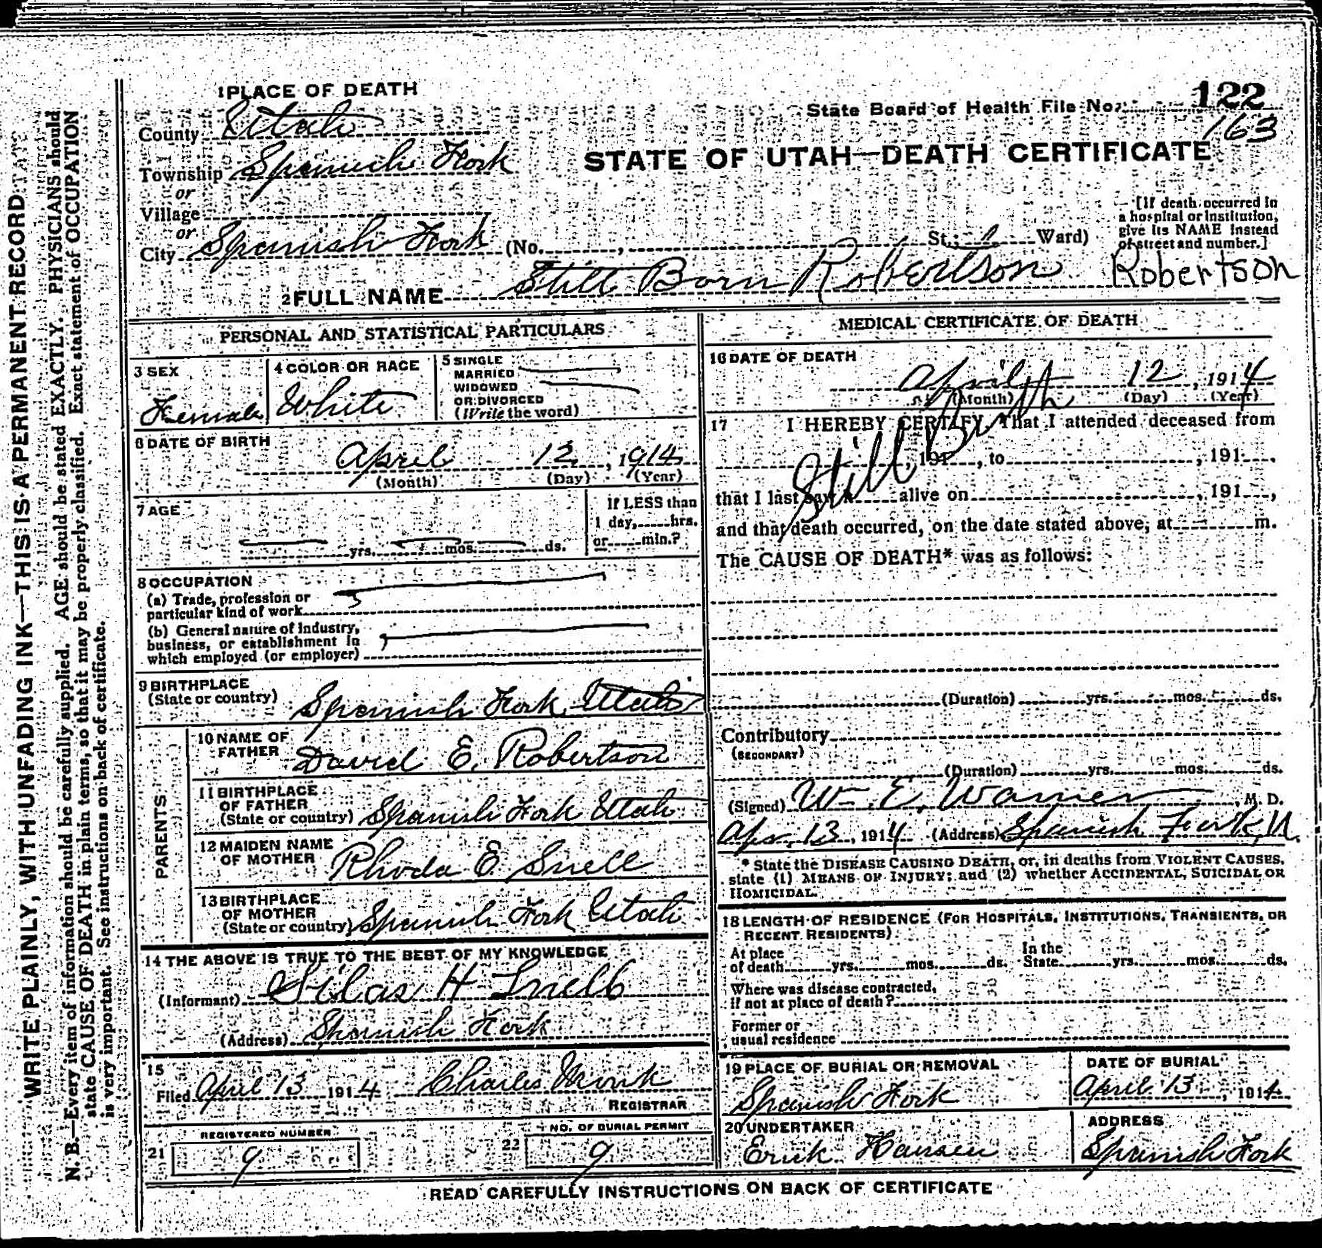 WRITE PLAINLY, WITH UNFADING INK—THIS IS A PERMANENT RECORD
N. B.—Every item of information should be carefully supplied. AGE should be stated EXACTLY. PHYSICIANS should
state CAUSE OF DEATH in plain terms, so that it may be properly classified. Exact statement of OCCUPATION
is very important. See instructions on back of certificate.
1 PLACE OF DEATH
County Utah
Township Spanish Fork
or
Village
or
City Spanish Fork (No. , St. Ward)
State Board of Health File No. 122
163
STATE OF UTAH—DEATH CERTIFICATE
[If death occurred in
a hospital or institution,
give its NAME instead
of street and number.]
2 FULL NAME Still Born Robertson Robertson
PERSONAL AND STATISTICAL PARTICULARS
3 SEX
Female
4 COLOR OR RACE
White
5 SINGLE
MARRIED
WIDOWED
OR DIVORCED
(Write the word)
6 DATE OF BIRTH
April 12, 1914
(Month) (Day) (Year)
7 AGE
yrs. mos. ds.
If LESS than
1 day, hrs.
or min.?
8 OCCUPATION
(a) Trade, profession or
particular kind of work
(b) General nature of Industry,
business, or establishment in
which employed (or employer)
9 BIRTHPLACE
(State or country) Spanish Fork, Utah
PARENTS
10 NAME OF
FATHER David E. Robertson
11 BIRTHPLACE
OF FATHER
(State or country) Spanish Fork Utah
12 MAIDEN NAME
OF MOTHER Rhoda E Snell
13 BIRTHPLACE
OF MOTHER
(State or country) Spanish Fork Utah
14 THE ABOVE IS TRUE TO THE BEST OF MY KNOWLEDGE
(Informant) Silas H Snell
(Address) Spanish Fork
15
Filed April 13 1914 Charles Monk
REGISTRAR
21 REGISTERED NUMBER
9
22 NO. OF BURIAL PERMIT
9
MEDICAL CERTIFICATE OF DEATH
16 DATE OF DEATH
April 12, 1914
(Month) (Day) (Year)
17 I HEREBY CERTIFY, That I attended deceased from
, 191 , to , 191 ,
Still Birth
that I last saw h alive on , 191 ,
and that death occurred, on the date stated above, at m.
The CAUSE OF DEATH* was as follows:
(Duration) yrs. mos. ds.
Contributory
(SECONDARY)
(Duration) yrs. mos. ds.
(Signed) W. E. Warner, M. D.
Apr. 13, 1914 (Address) Spanish Fork, U.
* State the DISEASE CAUSING DEATH, or, in deaths from VIOLENT CAUSES,
state (1) MEANS OF INJURY; and (2) whether ACCIDENTAL, SUICIDAL OR
HOMICIDAL.
18 LENGTH OF RESIDENCE (FOR HOSPITALS, INSTITUTIONS, TRANSIENTS, OR
RECENT RESIDENTS)
At place
of death yrs. mos. ds.
In the
State yrs. mos. ds.
Where was disease contracted,
if not at place of death?
Former or
usual residence
19 PLACE OF BURIAL OR REMOVAL
Spanish Fork
DATE OF BURIAL
April 13, 1914
20 UNDERTAKER
Erick Hansen
ADDRESS
Spanish Fork
READ CAREFULLY INSTRUCTIONS ON BACK OF CERTIFICATE